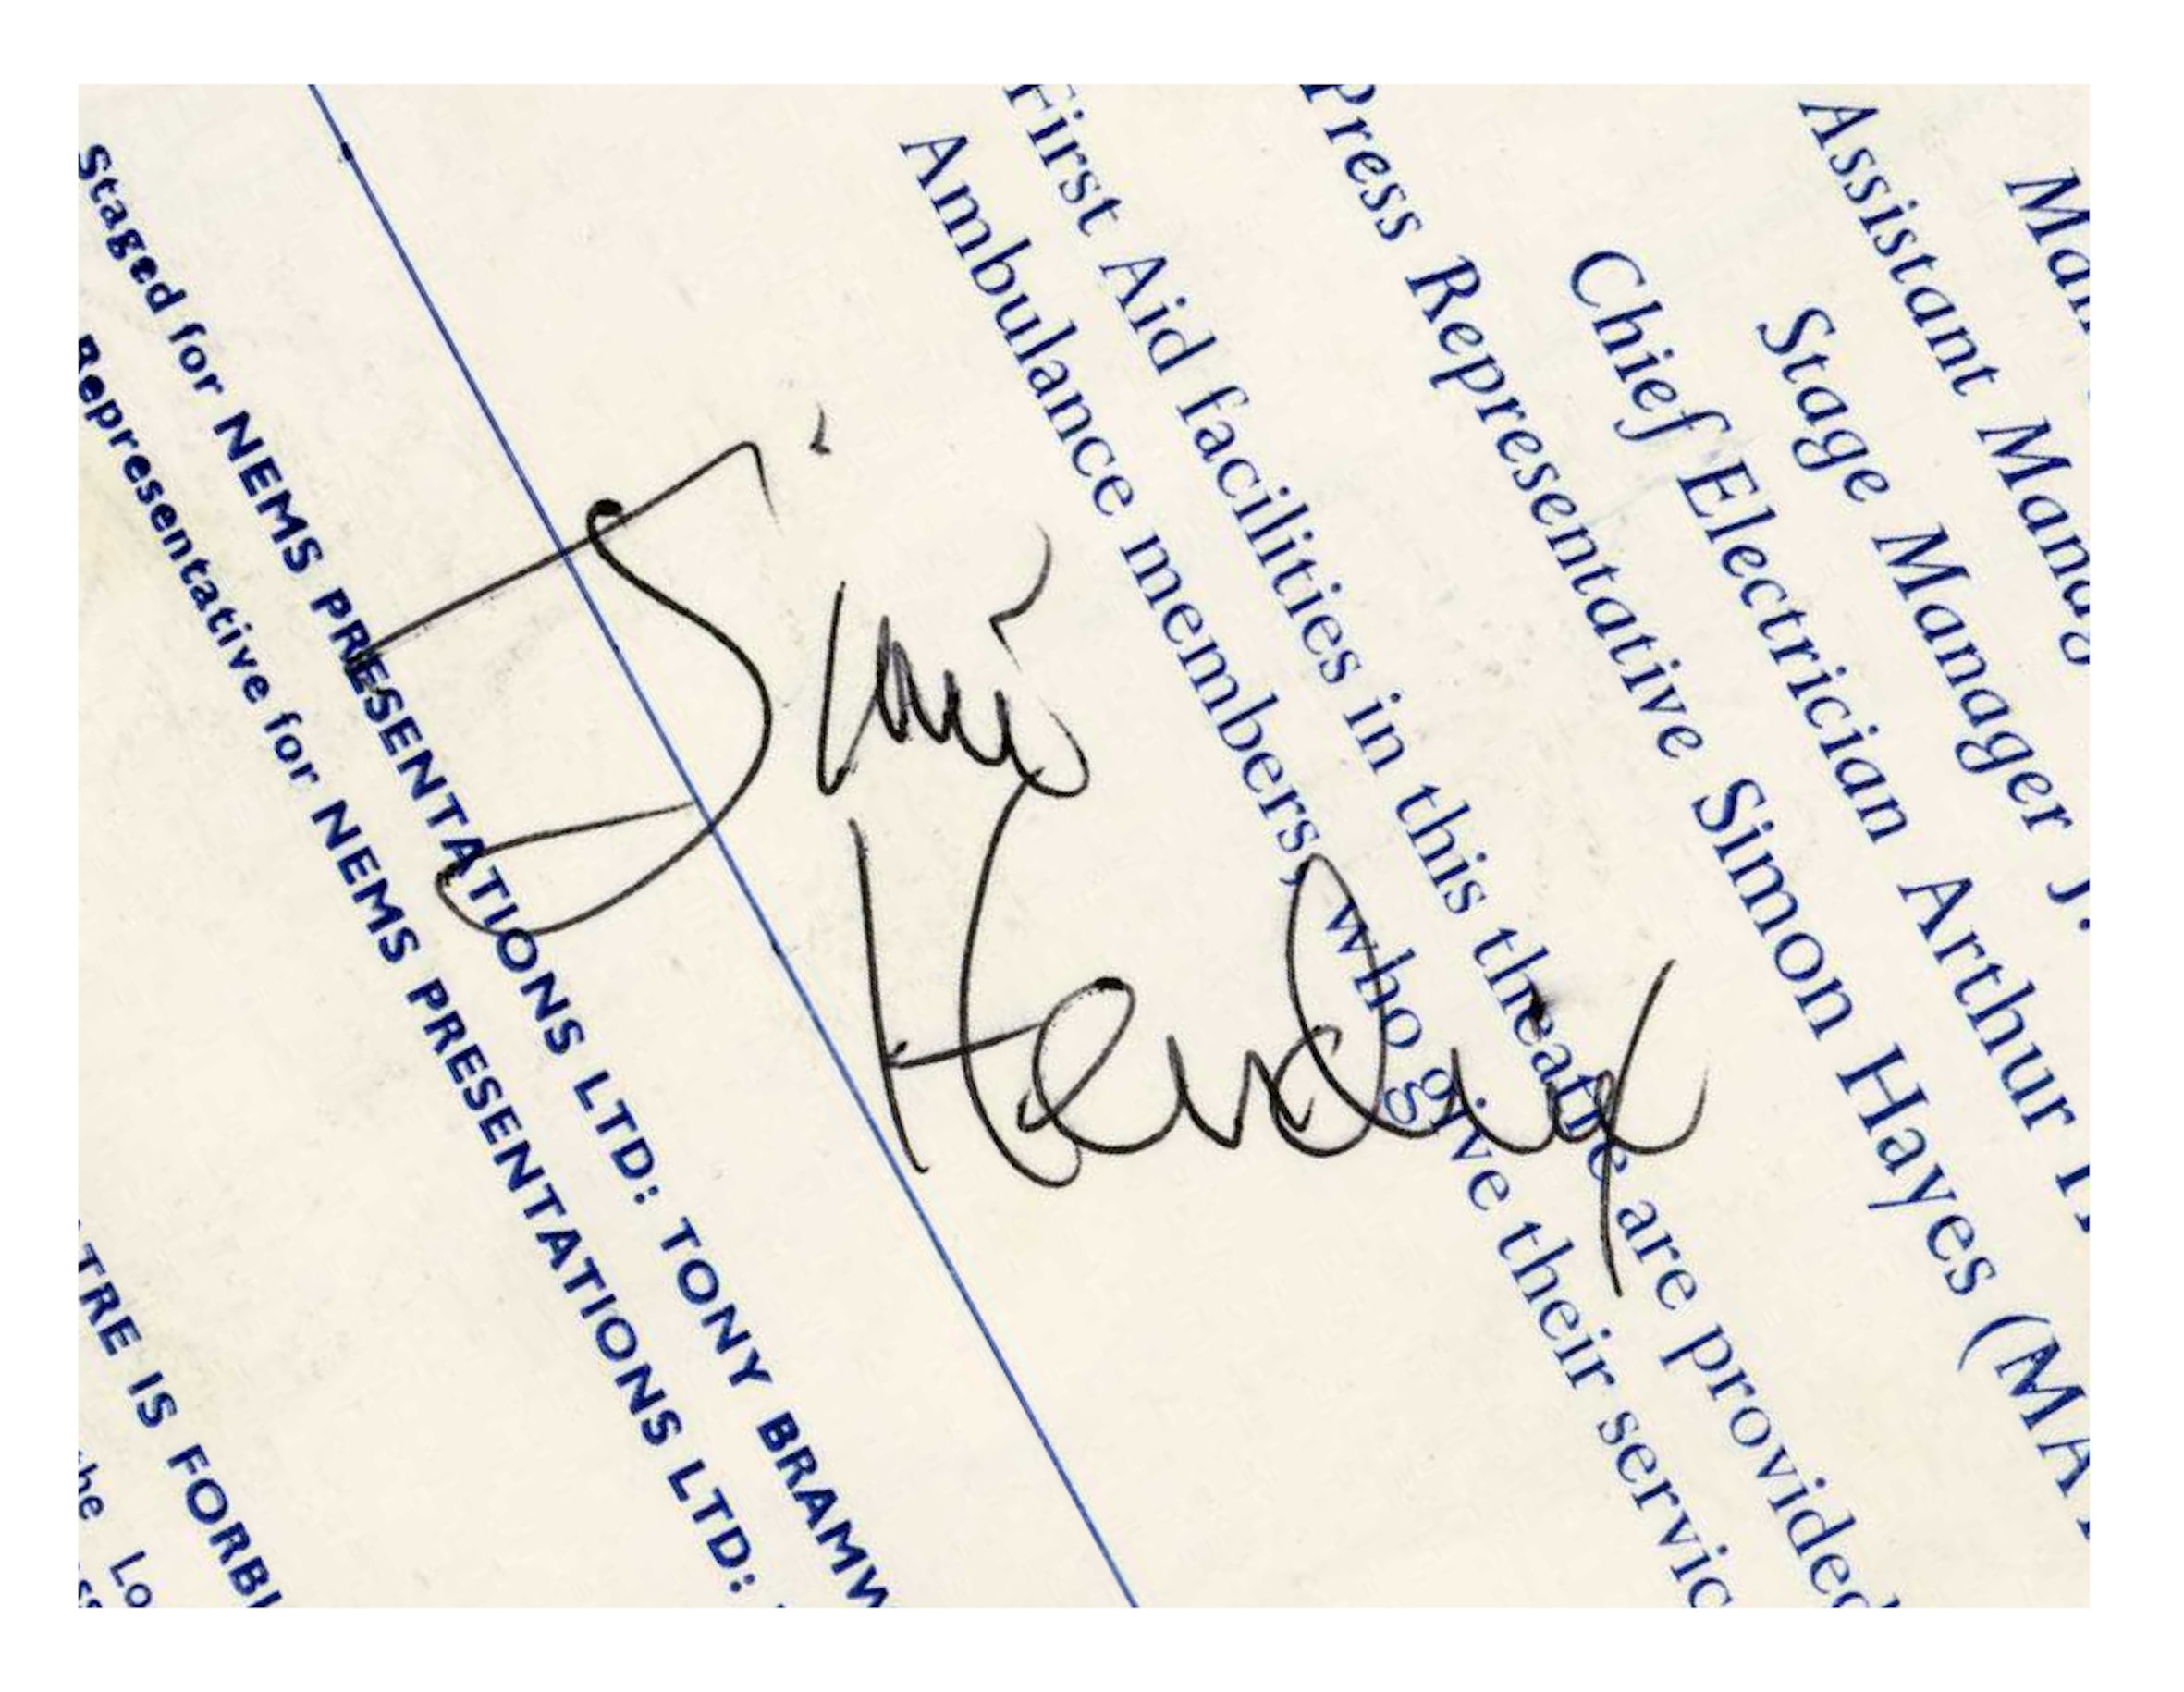 Man
Assistant Manag
Stage Manager J.
Chief Electrician Arthur
Press Representative Simon Hayes (MA
First Aid facilities in this theatre are provided
Ambulance members, who give their servic
Jimi
Hendrix
Staged for NEMS PRESENTATIONS LTD: TONY BRAMW
Representative for NEMS PRESENTATIONS LTD:
TRE IS FORBI
he Lo
ss